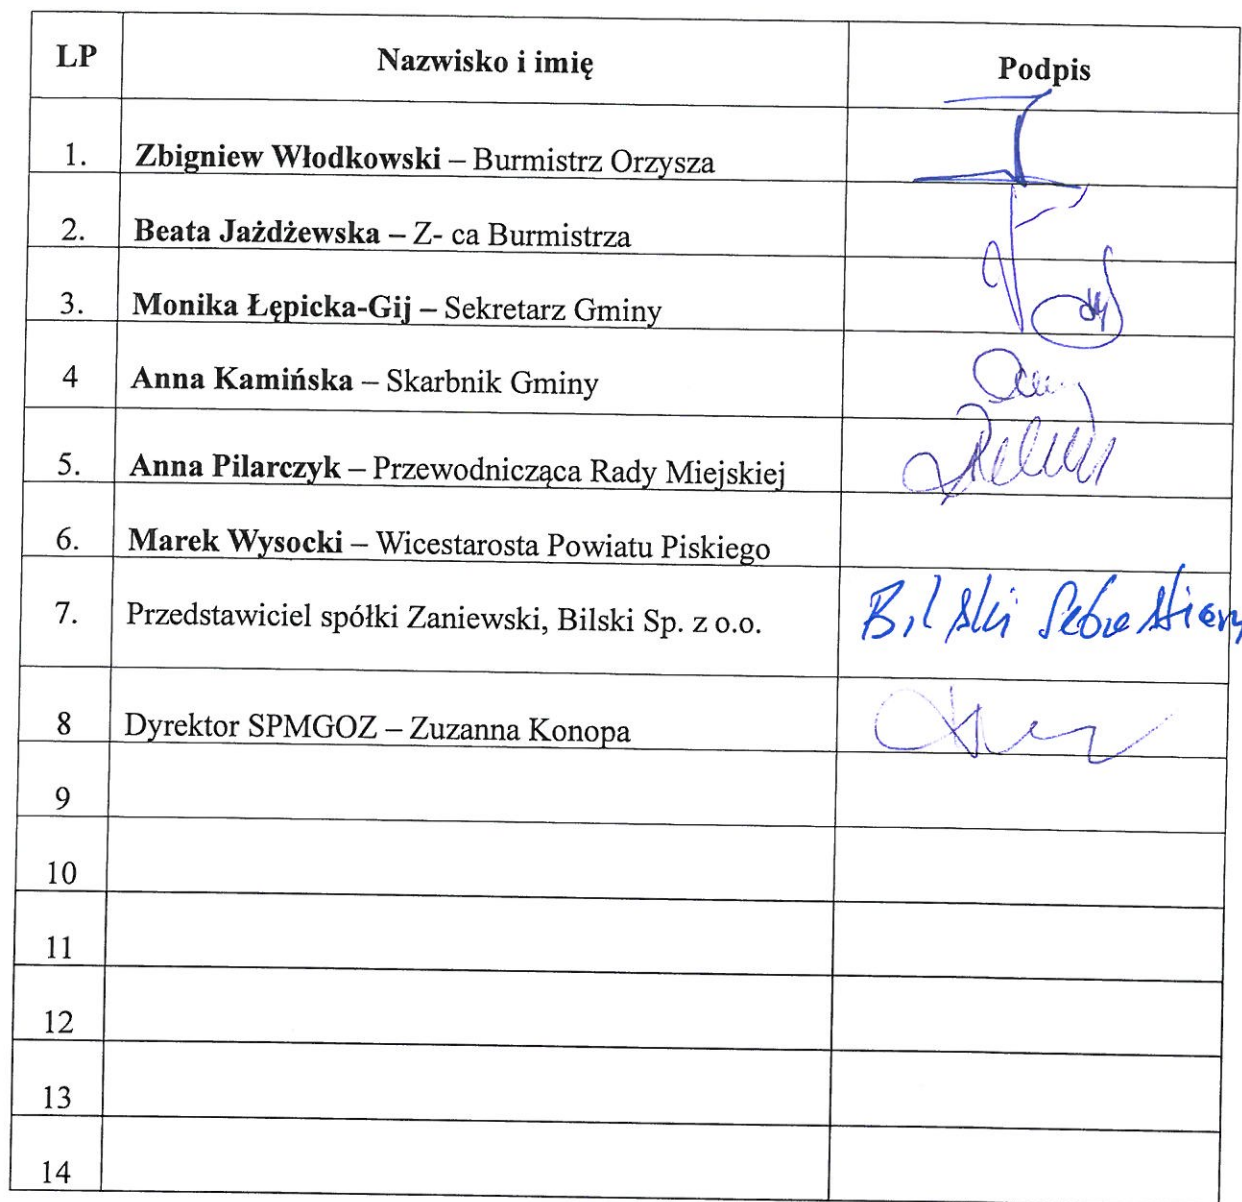 LP Nazwisko i imię Podpis
1. Zbigniew Włodkowski – Burmistrz Orzysza
2. Beata Jażdżewska – Z- ca Burmistrza
3. Monika Łępicka-Gij – Sekretarz Gminy
4 Anna Kamińska – Skarbnik Gminy
5. Anna Pilarczyk – Przewodnicząca Rady Miejskiej
6. Marek Wysocki – Wicestarosta Powiatu Piskiego
7. Przedstawiciel spółki Zaniewski, Bilski Sp. z o.o. Bilski Sebastian
8 Dyrektor SPMGOZ – Zuzanna Konopa
9
10
11
12
13
14